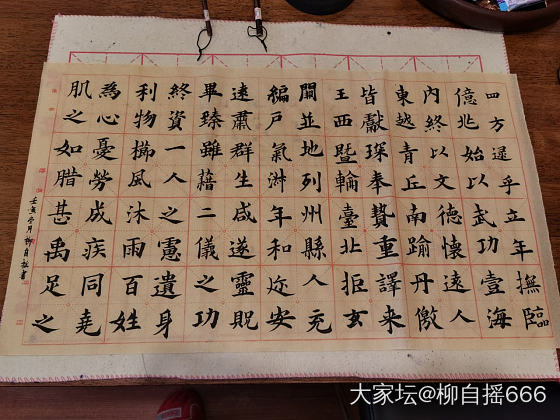 四方逮乎立年撫臨
億兆始以武功壹海
内終以文德懷遠人
東越青丘南踰丹儌
皆獻琛奉贄重譯来
王西暨輪臺北拒玄
闕並地列州縣人充
編戶氣淑年和迩安
遠肅群生咸遂靈貺
畢臻雖藉二儀之功
終資一人之慮遺身
利物櫛風沐雨百姓
為心憂勞成疾同堯
肌之如腊甚禹足之
月柳自摇書
大家坛@柳自摇666